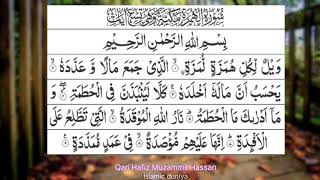 سُوْرَةُ الْهُمَزَةِ مَكِّيَّةٌ وَّهِيَ تِسْعُ اٰيَاتٍ
بِسْمِ اللّٰهِ الرَّحْمٰنِ الرَّحِيْمِ
وَيْلٌ لِّكُلِّ هُمَزَةٍ لُّمَزَةِ ۙ۱ الَّذِيْ جَمَعَ مَالًا وَّ عَدَّدَهٗ ۙ۲
يَحْسَبُ اَنَّ مَالَهٗۤ اَخْلَدَهٗ ۚ۳ كَلَّا لَيُنْۢبَذَنَّ فِي الْحُطَمَةِ ۖ۴ وَ
مَاۤ اَدْرٰىكَ مَا الْحُطَمَةُ ؕ۵ نَارُ اللّٰهِ الْمُوْقَدَةُ ۙ۶ الَّتِيْ تَطَّلِعُ عَلَى
الْاَفْـِٕدَةِ ؕ۷ اِنَّهَا عَلَيْهِمْ مُّؤْصَدَةٌ ۙ۸ فِيْ عَمَدٍ مُّمَدَّدَةٍ ۠۹
Qari Hafiz Muzammil Hassan
Islamic duniya